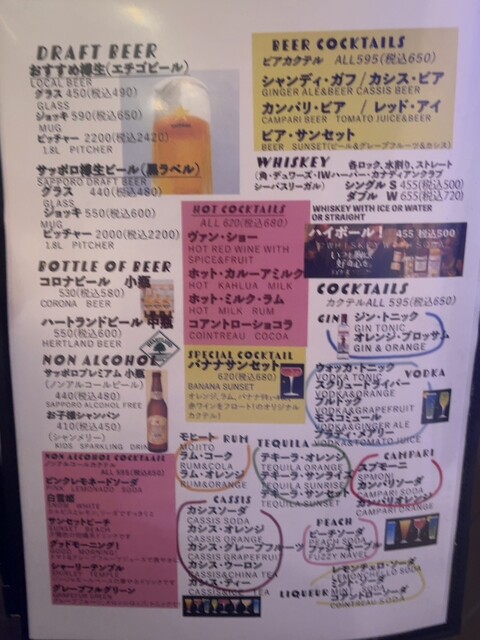 DRAFT BEER
おすすめ樽生(エチゴビール)
LOCAL BEER
グラス 450(税込490)
GLASS
ジョッキ 590(税込650)
MUG
ピッチャー 2200(税込2420)
1.8L PITCHER
サッポロ樽生ビール(黒ラベル)
SAPPORO DRAFT BEER
グラス 440(税込480)
GLASS
ジョッキ 550(税込600)
MUG
ピッチャー 2000(税込2200)
1.8L PITCHER
BOTTLE OF BEER
コロナビール 小瓶
530(税込580)
CORONA BEER
ハートランドビール 中瓶
550(税込600)
HERTLAND BEER
NON ALCOHOL
サッポロプレミアム 小瓶
(ノンアルコールビール)
440(税込480)
SAPPORO ALCOHOL FREE
お子様シャンパン
410(税込450)
(シャンメリー)
KIDS SPARKLING DRINK
NON ALCOHOL COCKTAIL
ノンアルコールカクテル
ALL 595(税込650)
ピンクレモネードソーダ
PINK LEMONADE SODA
白雪姫
SNOW WHITE
サンセットピーチ
SUNSET PEACH
グッドモーニング!
GOOD MORNING
シャーリーテンプル
SHIRLEY TEMPLE
グレープフルグリーン
BEER COCKTAILS
ビアカクテル ALL595(税込650)
シャンディ・ガフ / カシス・ビア
GINGER ALE&BEER CASSIS BEER
カンパリ・ビア / レッド・アイ
CAMPARI BEER TOMATO JUICE&BEER
ビア・サンセット
BEER SUNSET(ビール&グレープフルーツ&カシス)
WHISKEY 各ロック、水割り、ストレート
(角・デュワーズ・IWハーパー・カナディアンクラブ
シーバスリーガル) シングル S 455(税込500)
ダブル W 655(税込720)
WHISKEY WITH ICE OR WATER
OR STRAIGHT
ハイボール! 455 税込500
HOT COCKTAILS
ALL 620(税込680)
ヴァン・ショー
HOT RED WINE WITH
SPICE&FRUIT
ホット・カルーアミルク
HOT KAHLUA MILK
ホット・ミルク・ラム
HOT MILK RUM
コアントローショコラ
COINTREAU COCOA
SPECIAL COCKTAIL
バナナサンセット
620(税込680)
BANANA SUNSET
オレンジ、ラム、バナナリキュール
赤ワインをフロート!のオリジナル
カクテル!
COCKTAILS
カクテルALL 595(税込650)
GIN
ジン・トニック
GIN TONIC
オレンジ・ブロッサム
GIN & ORANGE
VODKA
ウォッカ・トニック
VODKA TONIC
スクリュードライバー
VODKA&ORANGE
ブルドック
VODKA&GRAPEFRUIT
モスコミュール
VODKA&GINGER ALE
ブラディ・メアリー
VODKA&TOMATO JUICE
RUM
モヒート
MOJITO
ラム・コーク
RUM&COLA
ラム・オレンジ
RUM&ORANGE
TEQUILA
テキーラ・オレンジ
TEQUILA ORANGE
テキーラ・サンライズ
TEQUILA SUNRISE
テキーラ・サンセット
TEQUILA SUNSET
CAMPARI
スプモーニ
SPMONI
カンパリソーダ
CAMPARI SODA
カンパリオレンジ
CAMPARI ORANGE
CASSIS
カシスソーダ
CASSIS SODA
カシス・オレンジ
CASSIS ORANGE
カシス・グレープフルーツ
CASSIS GRAPEFRUIT
カシス・ウーロン
CASSIS&CHINA TEA
カシス・ティー
PEACH
ピーチソーダ
PEACH SODA
ファジーネーブル
FUZZY NAVEL
LIQUEUR
レモンチェロ・ソーダ
LEMONCHELLO SODA
ミント・ソーダ
コアントロー・ソーダ
COINTREAU SODA